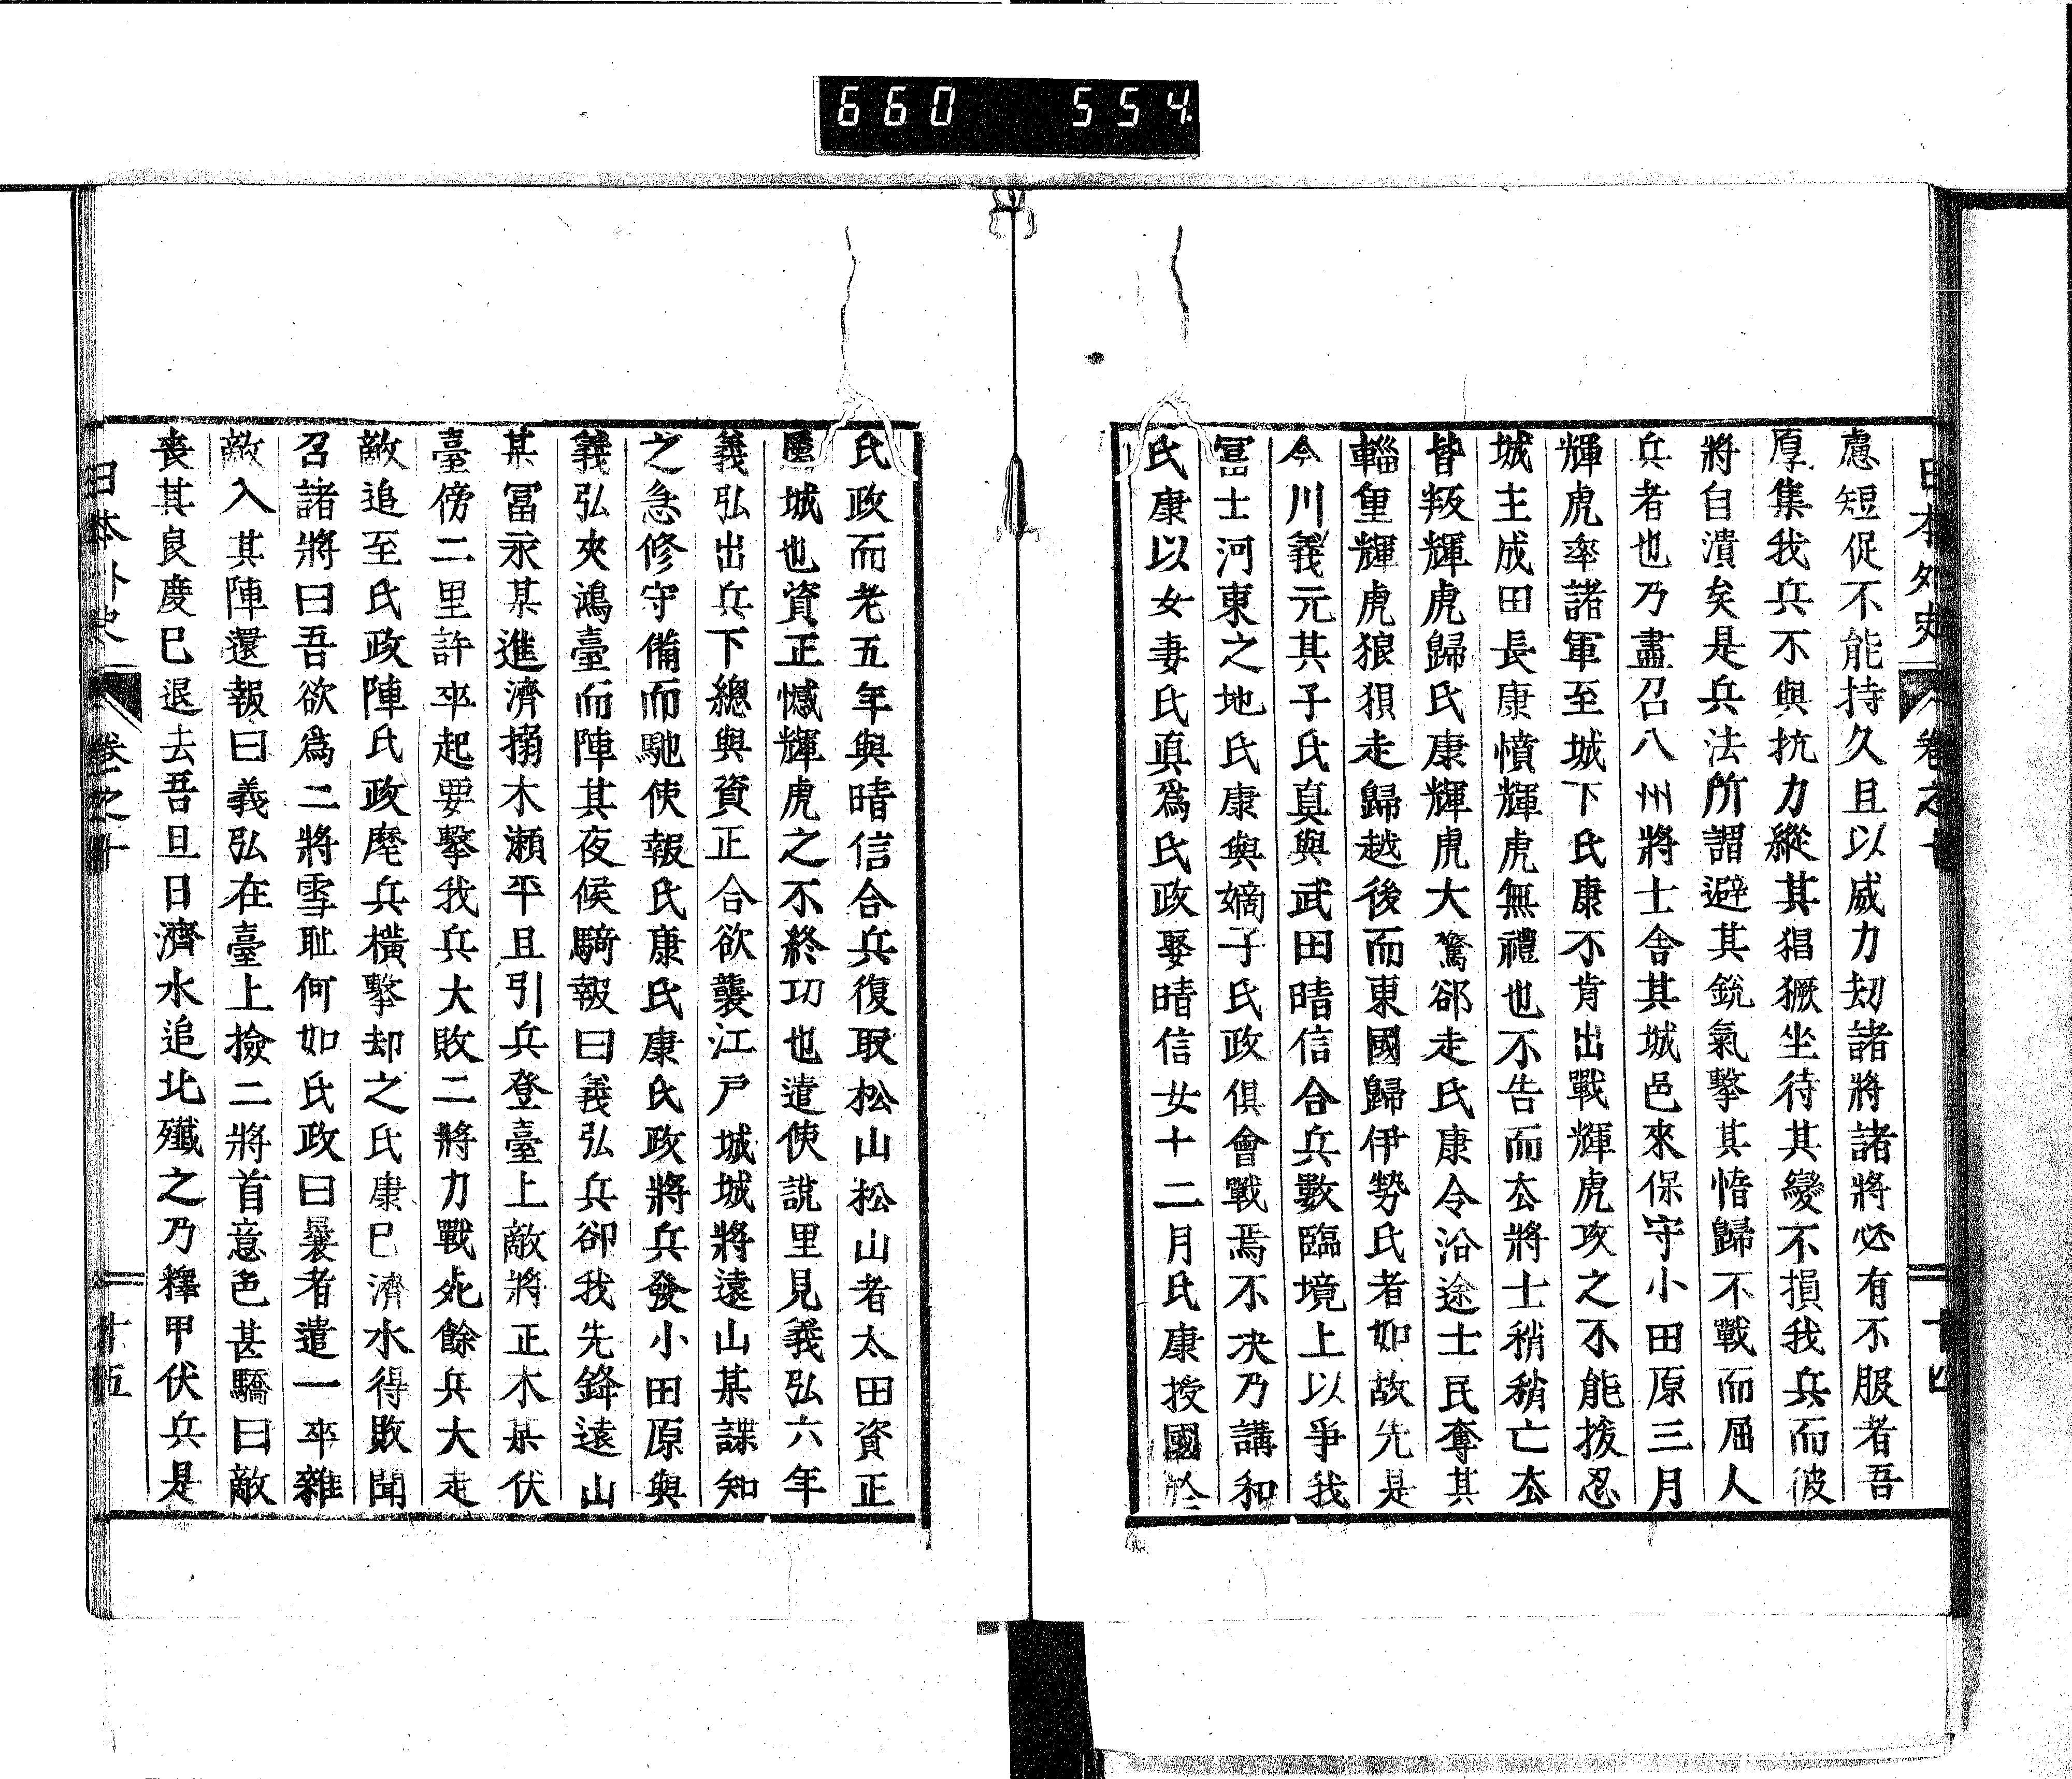 660 554.
日本外史 卷之十 十四
慮短促不能持久且以威力刼諸將諸將必有不服者吾
厚集我兵不與抗力縱其猖獗坐待其變不損我兵而彼
將自潰矣是兵法所謂避其銳氣擊其惰歸不戰而屈人
兵者也乃盡召八州將士舍其城邑來保守小田原三月
輝虎率諸軍至城下氏康不肯出戰輝虎攻之不能拔忍
城主成田長康憤輝虎無禮也不告而厺將士稍稍亡厺
皆叛輝虎歸氏康輝虎大驚郤走氏康令沿途士民奪其
輜重輝虎狼狽走歸越後而東國歸伊勢氏者如故先是
今川義元其子氏真與武田晴信合兵數臨境上以爭我
冨士河東之地氏康與嫡子氏政俱會戰焉不决乃講和
氏康以女妻氏真爲氏政娶晴信女十二月氏康授國於
氏政而老五年與晴信合兵復取松山松山者太田資正
屬城也資正憾輝虎之不終功也遣使說里見義弘六年
義弘出兵下總與資正合欲襲江戸城城將遠山某諜知
之急修守備而馳使報氏康氏康氏政將兵發小田原與
義弘夾鴻臺而陣其夜候騎報曰義弘兵卻我先鋒遠山
某冨永某進濟搦木瀨平旦引兵登臺上敵將正木某伏
臺傍二里許卒起要擊我兵大敗二將力戰死餘兵大走
敵追至氏政陣氏政麾兵橫擊却之氏康已濟水得敗聞
召諸將曰吾欲爲二將雪耻何如氏政曰曩者遣一卒雜
敵入其陣還報曰義弘在臺上撿二將首意色甚驕曰敵
喪其良慶已退去吾旦日濟水追北殲之乃釋甲伏兵是
日本外史 卷之十 十五